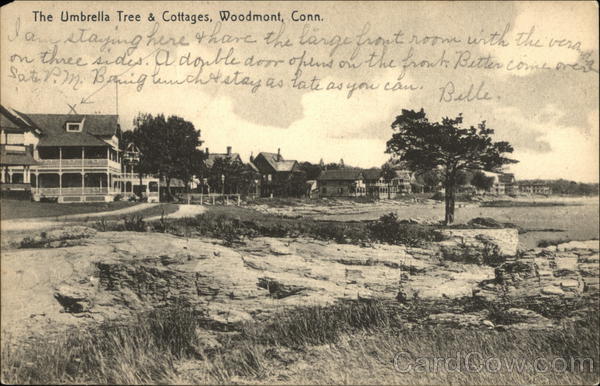 The Umbrella Tree & Cottages, Woodmont, Conn.
I am staying here & have the large front room with the vera
on three sides. A double door opens on the front. Better come over
Sat. P.M. Bring lunch & stay as late as you can. Belle.
X
CardCow.com